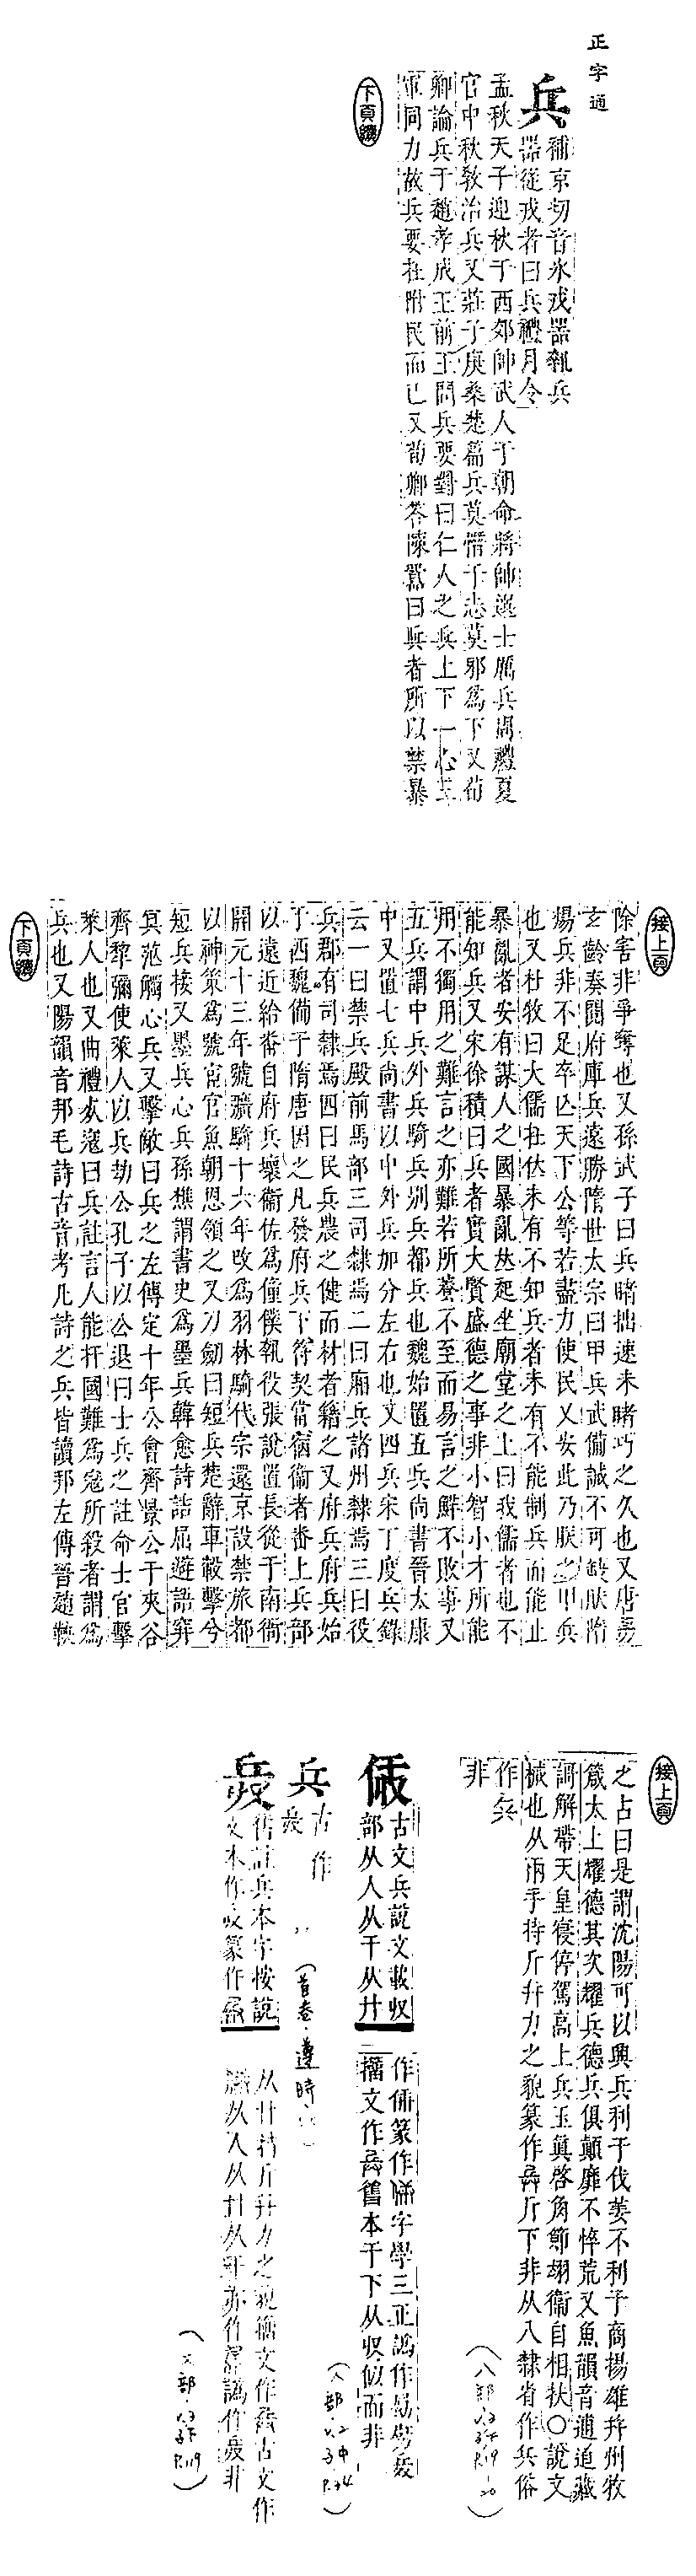 正字通
兵
補京切音氷戎器執兵
器從戎者曰兵禮月令
孟秋天子迎秋于西郊帥武人于朝命將帥選士厲兵周禮夏
官中秋敎治兵又莊子庚桑楚篇兵莫憯于志莫邪爲下又荀
卿論兵于趙孝成王前王問兵要對曰仁人之兵上下一心三
軍同力故兵要在附民而已又荀卿答陳囂曰兵者所以禁暴
下頁續
接上頁
除害非爭奪也又孫武子曰兵睹拙速未睹巧之久也又唐房
玄齡奏閱府庫兵遠勝隋世太宗曰甲兵武備誠不可缺然隋
煬兵非不足卒亡天下公等若盡力使民乂安此乃朕之甲兵
也又杜牧曰大儒在位未有不知兵者未有不能制兵而能止
暴亂者安有謀人之國暴亂起坐廟堂之上曰我儒者也不
能知兵又宋徐積曰兵者實大賢盛德之事非小智小才所能
用不獨用之難言之亦難若所養不至而易言之鮮不敗事又
五兵謂中兵外兵騎兵別兵都兵也魏始置五兵尚書晉太康
中又置七兵尚書以中外兵加分左右也又四兵宋丁度兵錄
云一曰禁兵殿前馬部三司隸焉二曰廂兵諸州隸焉三曰役
兵郡有司隸焉四曰民兵農之健而材者籍之又府兵府兵始
于西魏備于隋唐因之凡發府兵下符契當宿衞者番上兵部
以遠近給番自府兵壞衞佐爲僮僕執役張說置長從于南衙
開元十三年號彍騎十六年改爲羽林騎代宗還京設禁旅都
以神策爲號宦官魚朝恩領之又刀劒曰短兵楚辭車轂擊兮
短兵接又墨兵心兵孫樵謂書史爲墨兵韓愈詩詰屈避語穽
冥茫觸心兵又擊敵曰兵之左傳定十年公會齊景公于夾谷
齊犂彌使萊人以兵劫公孔子以公退曰士兵之註命士官擊
萊人也又曲禮死寇曰兵註言人能扞國難爲寇所殺者謂爲
兵也又陽韻音邦毛詩古音考凡詩之兵皆讀邦左傳晉趙鞅
下頁續
接上頁
之占曰是謂沈陽可以興兵利于伐姜不利子商揚雄幷州牧
箴太上耀德其次耀兵德兵俱顚靡不悴荒又魚韻音逋道藏
謌解帶天皇寢停駕高上兵玉眞啓角節翊衞自相扶〇說文
械也从兩手持斤幷力之貌篆作斤下非从八隸省作兵俗
作
非
(八部·
P.119-20)
古文兵說文載収
部从人从干从廾
作篆作字學三正譌作
擂文作舊本干下从収似而非
(人部·
P.74)
兵
古作
(首卷·遵時)
舊註兵本字按說
文本作篆作
从廾持斤幷力之貌籀文作古文作
从人从廾从干亦作譌作非
(又部·
P.119)